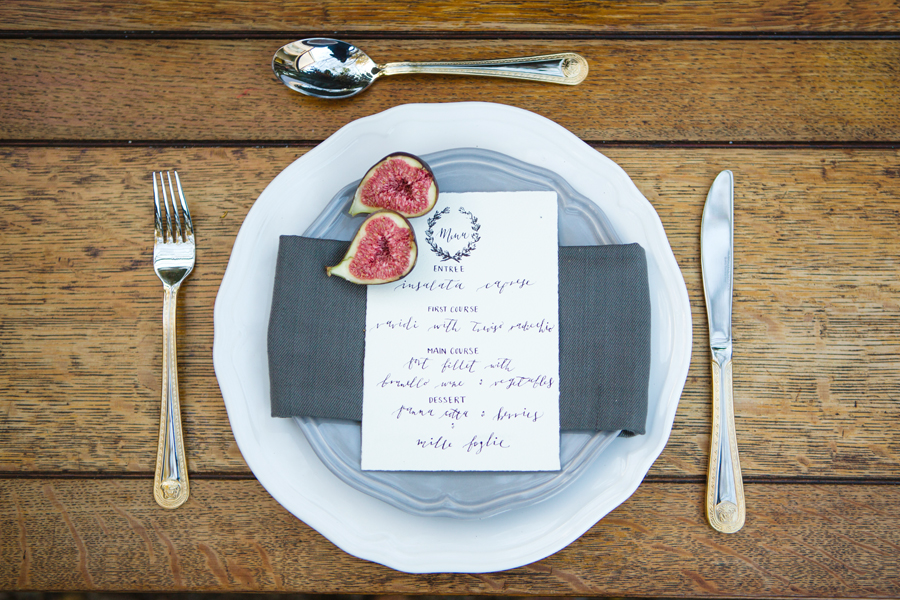 Mina
ENTREE
insalata caprese
FIRST COURSE
ravioli with Treviso radicchio
MAIN COURSE
fillet with
brunello wine & vegetables
DESSERT
panna cotta & berries
&
mille foglie